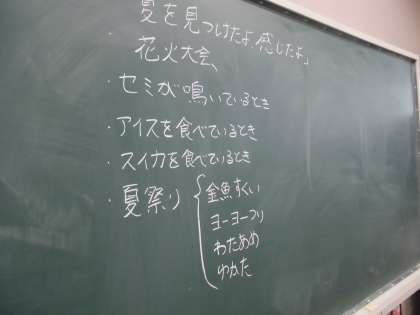 夏を見つけたよ.感じたよ」
花火大会、
・セミが鳴いているとき
・アイスを食べているとき
・スイカを食べているとき
・夏祭り
金魚すくい
ヨーヨーつり
わたあめ
ゆかた